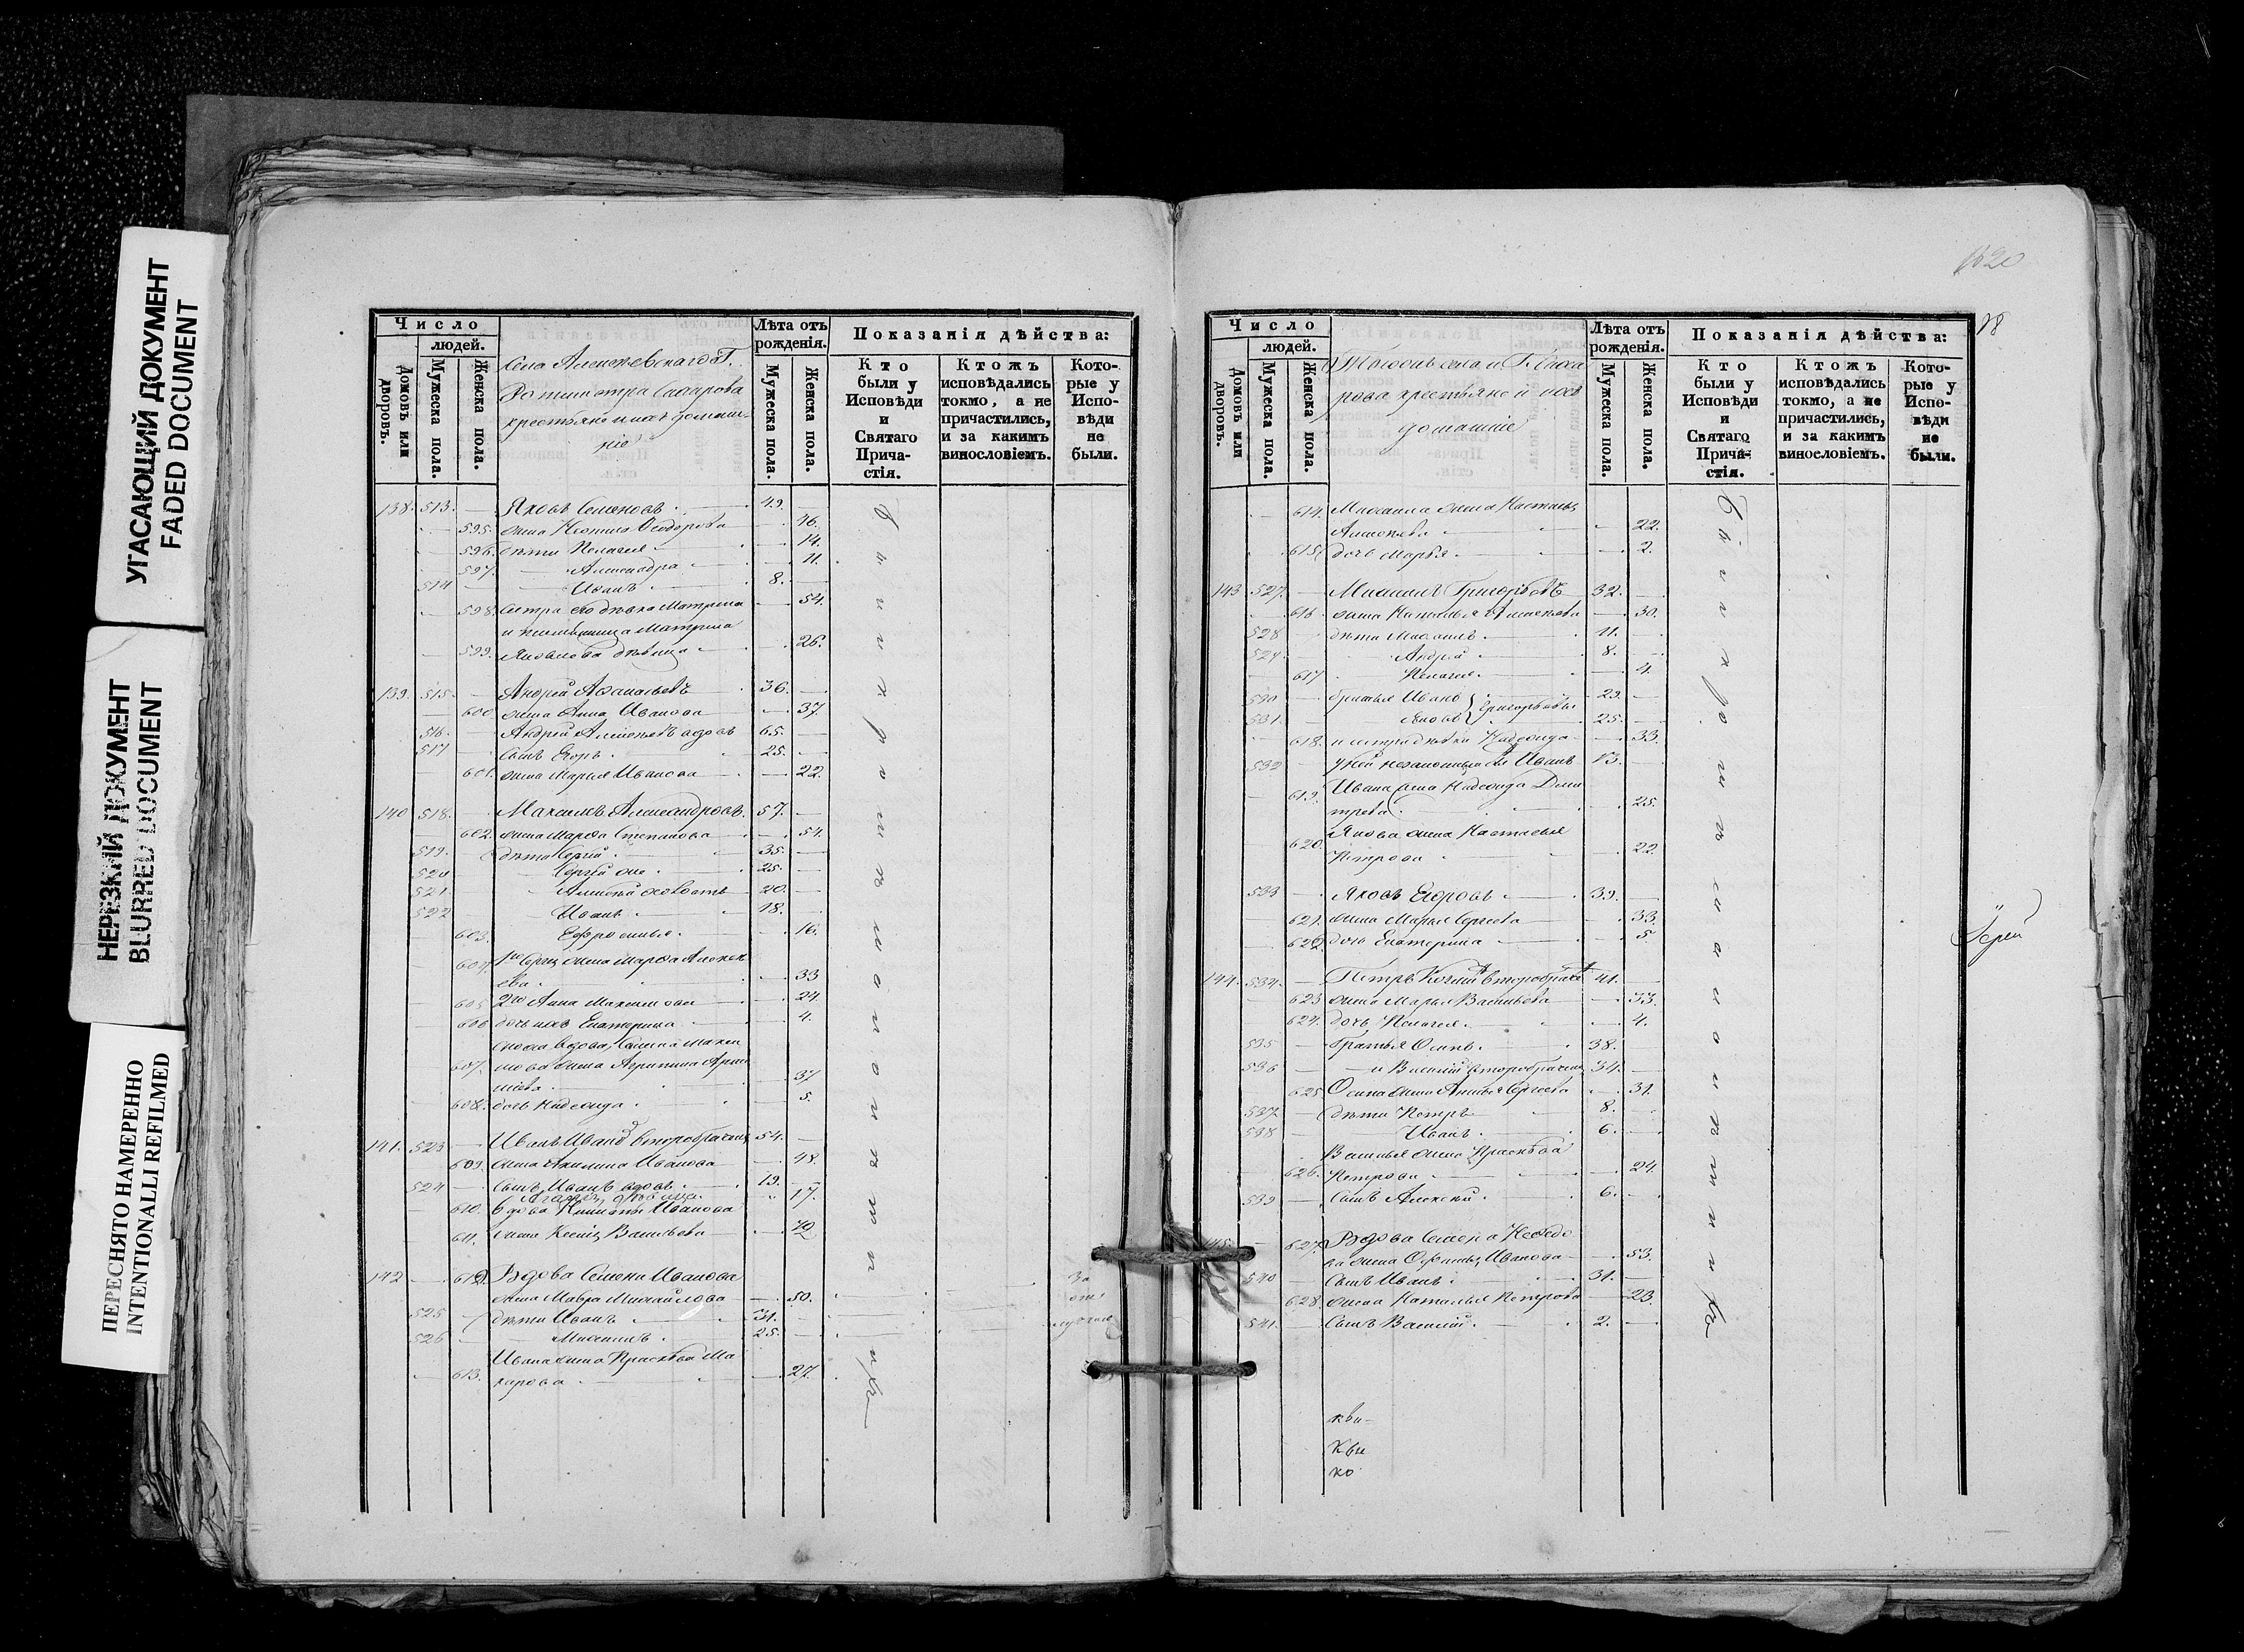 УГАСАЮЩИЙ ДОКУМЕНТ
FADED DOCUMENT
НЕРЕЗКИЙ ДОКУМЕНТ
BLURRED DOCUMENT
ПЕРЕСНЯТО НАМЕРЕННО
INTENTIONALLI REFILMED
Число
людей.
Домовъ или дворовъ.
Мужеска пола.
Женска пола.
Села Алексѣевскаго Г.
Ротмистра Сахарова
крестьяне и ихъ домаш-
ніе
Лѣта отъ рожденія.
Мужеска пола.
Женска пола.
Показанія дѣйства:
Кто были у Исповѣди и Святаго Прича-стія.
Ктожъ исповѣдались токмо, а не причастились, и за какимъ винословіемъ.
Кото-рые у Испо-вѣди не были.
138. 513. Яковъ Семеновъ 49.
595. жена Ѳеодорова 46.
596. дѣти Пелагея 14.
597. Александра 11.
514 Иванъ 8.
598. сестра его дѣвка Матрена 54.
и Матрена
599. Яковлева дѣвица 26.
139. 515. Андрей Аѳанасьевъ 36.
600 жена Анна Иванова 37
516. Андрей Алексѣевъ вдовъ 65.
517 сынъ Егоръ 25.
601. жена Марья Иванова 22.
140 518. Максимъ Александровъ 57.
602. жена Марѳа Степанова 54.
519. дѣти Сергій 35.
520 Сергій 25.
521. Алексѣй холостъ 20.
522 Иванъ 18.
603. Ефросинья 16.
604. 1го Сергія жена Марѳа Алексѣ
ева 33
605 2го Анна Максимова 24
606 дочь ихъ Екатерина 4.
сноха вдова, Макси
607. мова жена Агрипина
37
608. дочь Надежда 5.
141. 523 Иванъ Ивановъ второбрачный 54.
609. жена Акилина Иванова 48.
524 сынъ Иванъ вдовъ 19.
17.
610. вдова Никиты Иванова
611. жена Ксенія Васильева 70
142 612. Вдова Семена Иванова
жена Мавра Михайлова 50.
525 дѣти Иванъ 31.
526 Михаилъ 25.
Ивана жена Прасковья Ма
613. карова 27.
За
отлучкою
Были у
1620
Число
людей.
Домовъ или дворовъ.
Мужеска пола.
Женска пола.
Тогожъ села и Г. Саха
рова крестьяне и ихъ
домашніе
Лѣта отъ рожденія.
Мужеска пола.
Женска пола.
Показанія дѣйства:
Кто были у Исповѣди и Святаго Прича-стія.
Ктожъ исповѣдались токмо, а не причастились, и за какимъ винословіемъ.
Кото-рые у Испо-вѣди не были.
18
614. Михаила жена Настасья
Алексѣева 22.
615. дочь Марья 2.
143 527. Михаилъ Григорьевъ 32.
616 жена Наталья Алексѣева 30.
528 дѣти Михаилъ 11.
529. Андрей 8.
617 Пелагея 4.
530 братья Иванъ 29.
531 Яковъ Григорьевы 25.
618. и сестра дѣвка Надежда 33.
532 у ней незаконный сынъ Иванъ 13.
619. Ивана жена Надежда Дми
трева 25.
620. Якова жена Настасья
Петрова 22
533 Яковъ Егоровъ 39.
621. жена Марья Сергѣева 33.
622. дочь Екатерина 5.
144. 534. Петръ второбрач 41.
623 жена Марья Васильева 33.
624. дочь Пелагея 4.
535 братья Осипъ 38.
536 и Василій второбрачный 34.
625 Осипа жена Сергѣева 31.
537 дѣти Петръ 8.
538 Иванъ 6.
Василья жена Прасковья
626. Петрова 24.
539 сынъ Алексѣй 6.
145. 627. Вдова
ва жена Иванова 53.
540 сынъ Иванъ 31.
628. жена Наталья Петрова 23.
541. сынъ Василій 2.
Были у
Іерей
кви-
Кви
ко